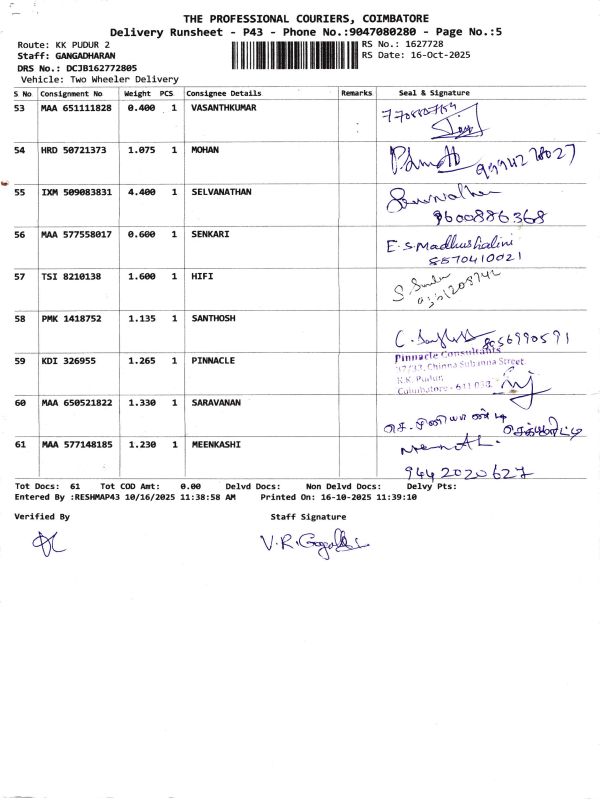 THE PROFESSIONAL COURIERS, COIMBATORE
Delivery Runsheet - P43 - Phone No.:9047080280 - Page No.:5
Route: KK PUDUR 2
RS No.: 1627728
Staff: GANGADHARAN
RS Date: 16-Oct-2025
DRS No.: DCJB162772805
Vehicle: Two Wheeler Delivery
S No Consignment No Weight PCS Consignee Details Remarks Seal & Signature
53 MAA 651111828 0.400 1 VASANTHKUMAR
54 HRD 50721373 1.075 1 MOHAN
55 IXM 509083831 4.400 1 SELVANATHAN
9600886368
56 MAA 577558017 0.600 1 SENKARI E.S.Madhushalini
8870410021
57 TSI 8210138 1.600 1 HIFI
58 PMK 1418752 1.135 1 SANTHOSH
8056990591
59 KDI 326955 1.265 1 PINNACLE Pinnacle Consultants
37/37, Chinna Subanna Street,
K.K. Pudur,
Coimbatore - 641 038.
60 MAA 650521822 1.330 1 SARAVANAN
61 MAA 577148185 1.230 1 MEENKASHI
9442020627
Tot Docs: 61 Tot COD Amt: 0.00 Delvd Docs: Non Delvd Docs: Delvy Pts:
Entered By :RESHMAP43 10/16/2025 11:38:58 AM Printed On: 16-10-2025 11:39:10
Verified By Staff Signature